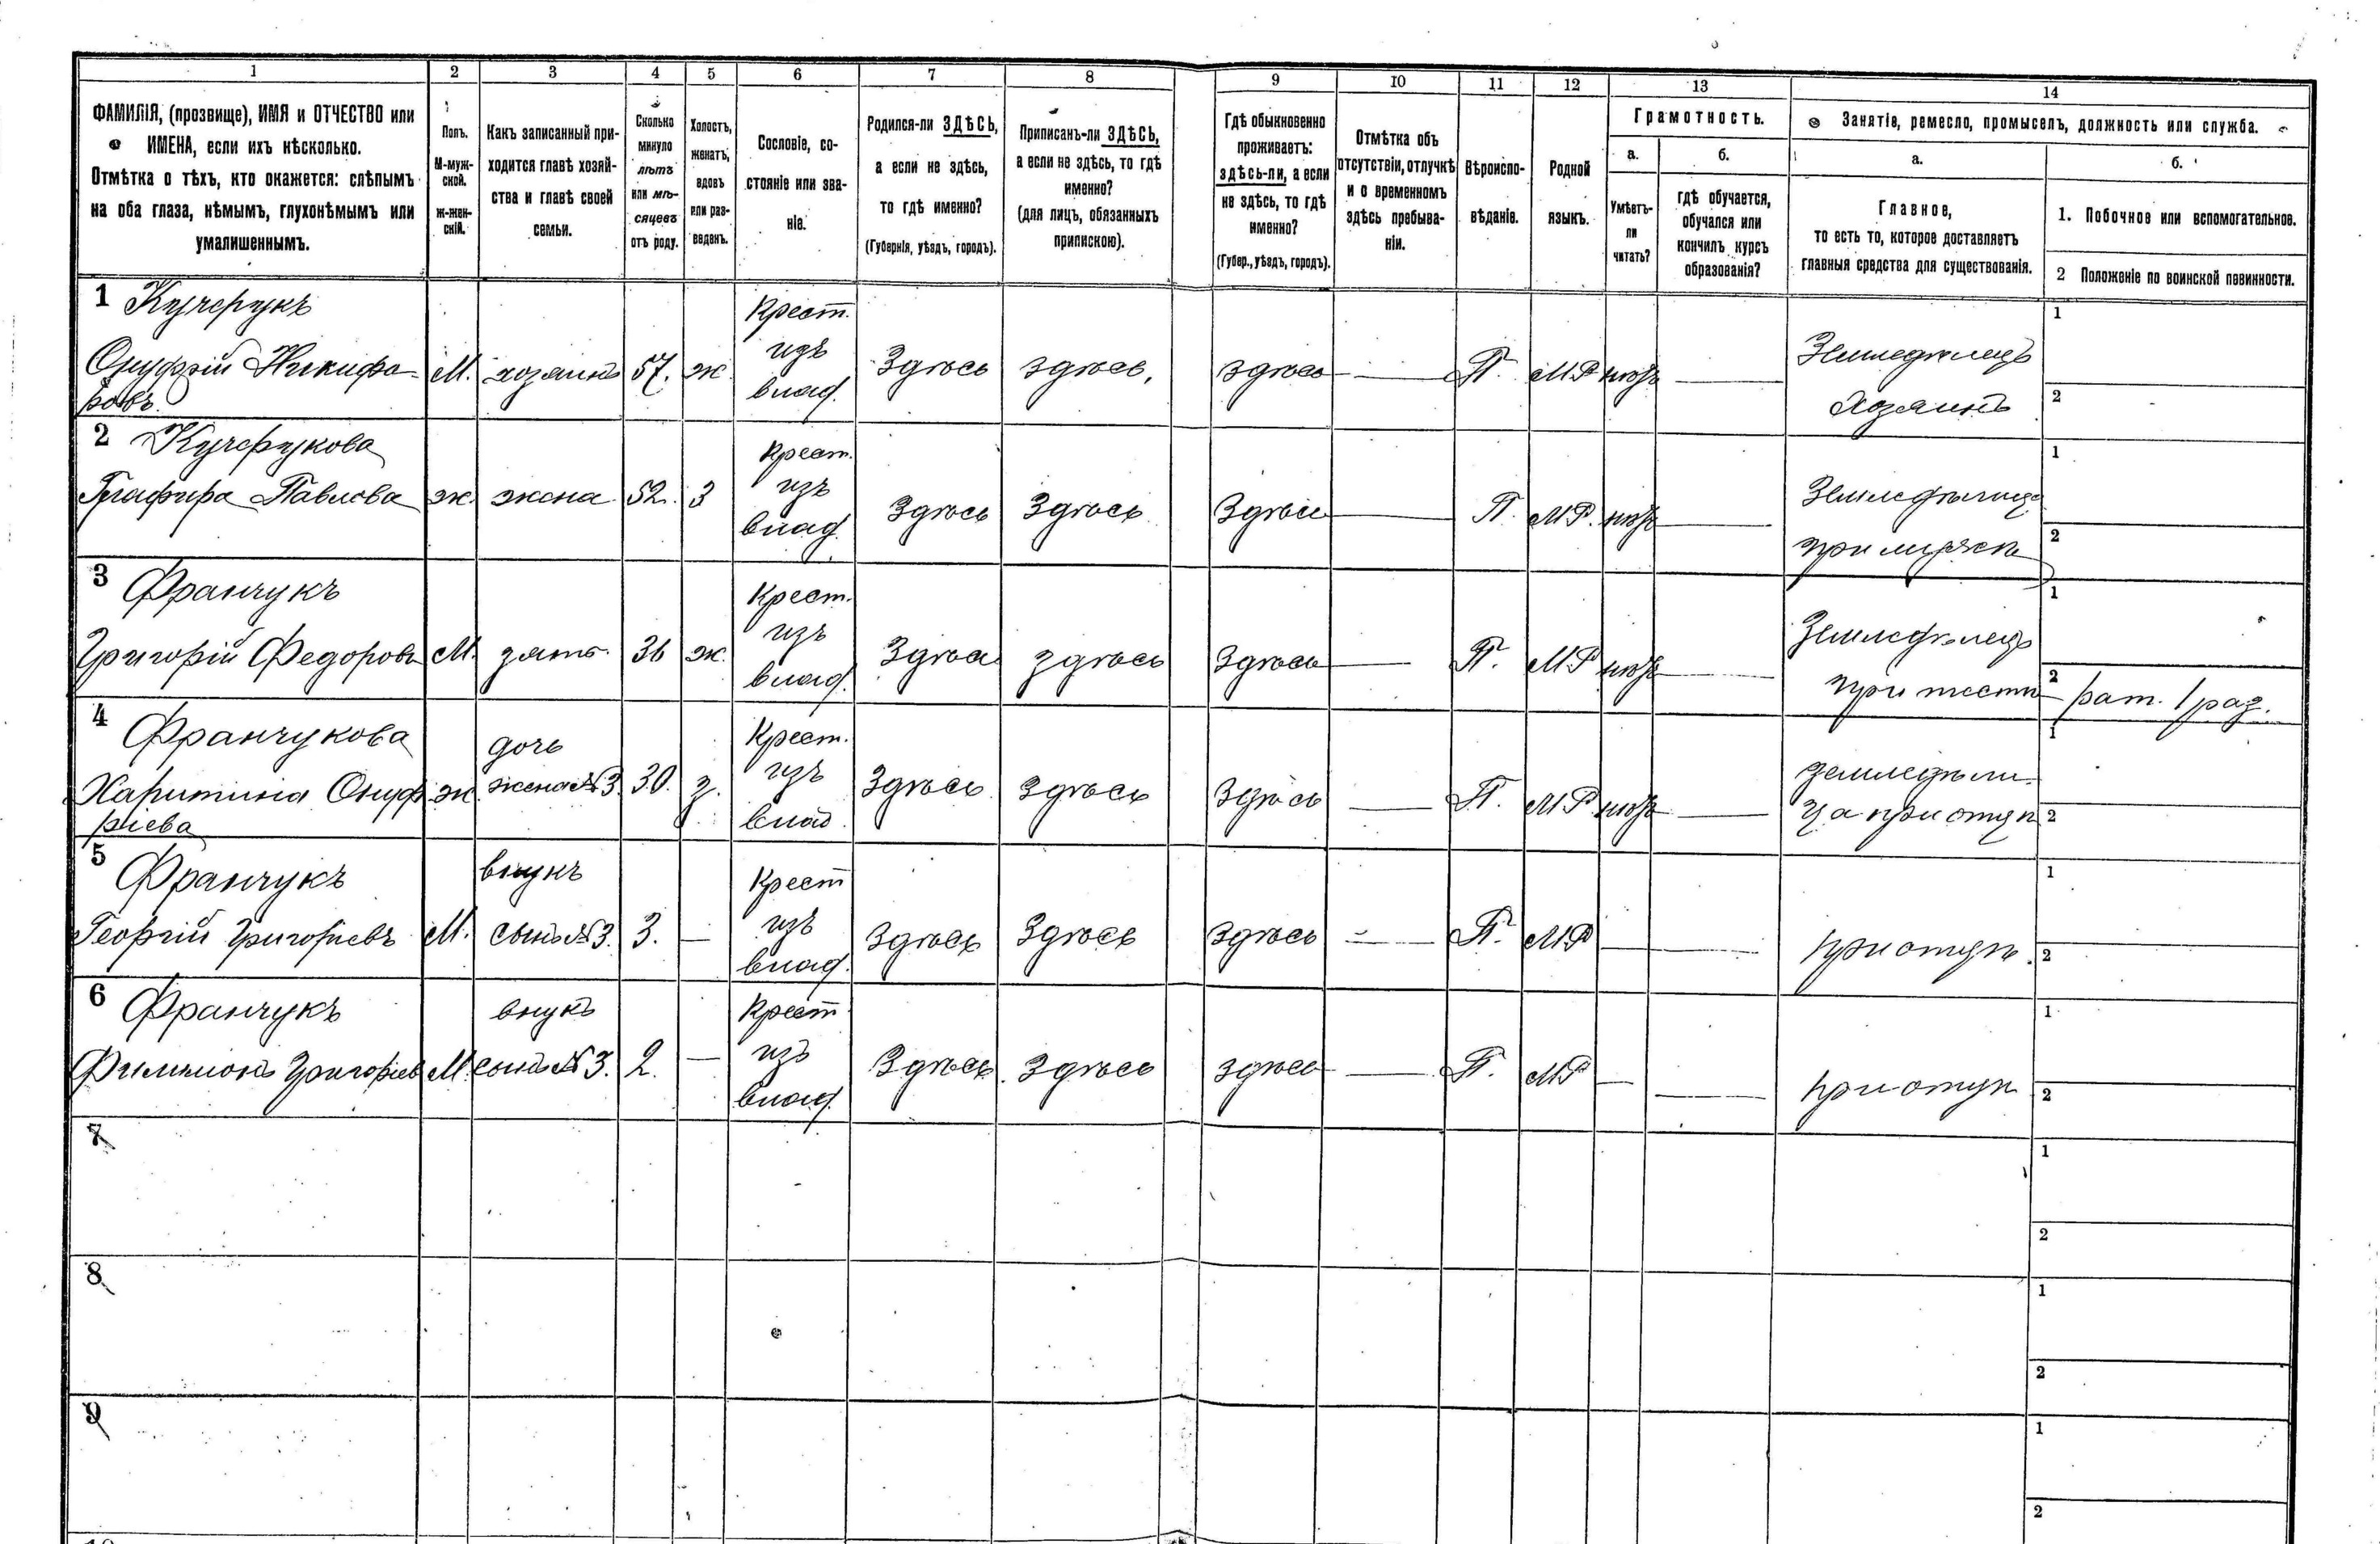 1 2 3 4 5 6 7 8 9 10 11 12 13 14
ФАМИЛІЯ, (прозвище), ИМЯ и ОТЧЕСТВО или
ИМЕНА, если ихъ нѣсколько.
Отмѣтка о тѣхъ, кто окажется: слѣпымъ
на оба глаза, нѣмымъ, глухонѣмымъ или
умалишеннымъ.
Полъ.
М-муж-
ской.
ж-жен-
скій.
Какъ записанный при-
ходится главѣ хозяй-
ства и главѣ своей
семьи.
Сколько
минуло
лѣтъ
или мѣ-
сяцевъ
отъ роду.
Холостъ,
женатъ,
вдовъ
или раз-
веденъ.
Сословіе, со-
стояніе или зва-
ніе.
Родился-ли ЗДѢСЬ,
а если не здѣсь,
то гдѣ именно?
(Губернія, уѣздъ, городъ).
Приписанъ-ли ЗДѢСЬ,
а если не здѣсь, то гдѣ
именно?
(для лицъ, обязанныхъ
припискою).
Гдѣ обыкновенно
проживаетъ:
здѣсь-ли, а если
не здѣсь, то гдѣ
именно?
(Губер., уѣздъ, городъ).
Отмѣтка объ
отсутствіи, отлучкѣ
и о временномъ
здѣсь пребыва-
ніи.
Вѣроиспо-
вѣданіе.
Родной
языкъ.
Грамотность.
а.
Умѣетъ-
ли
читать?
б.
гдѣ обучается,
обучался или
кончилъ курсъ
образованія?
Занятіе, ремесло, промыселъ, должность или служба.
а.
Главное,
то есть то, которое доставляетъ
главныя средства для существованія.
б.
1. Побочное или вспомогательное.
2 Положеніе по воинской повинности.
1 Кучерукъ
Онуфрій Никифо-
ровъ
М. хозяинъ 57. ж
Крест.
изъ
влад.
Здѣсь здѣсь, здѣсь — П. МР нѣтъ —
Земледѣлецъ
Хозяинъ
1
2
2 Кучерукова
Глафира Павлова
ж. жена 52. З
Крест.
изъ
влад.
Здѣсь Здѣсь Здѣсь — П. МР. нѣтъ —
Земледѣлица
при мужѣ
1
2
3 Франчукъ
Григорій Федоровъ
М. зять. 36 ж.
Крест.
изъ
влад.
Здѣсь здѣсь Здѣсь — П. МР нѣтъ —
Земледѣлецъ
при тестѣ
1
2 рат. 1 раз.
4 Франчукова
Харитина Онуф
ріева
ж.
дочь
жена №3. 30. з.
Крест.
изъ
влад.
Здѣсь Здѣсь Здѣсь — П. МР нѣтъ —
земледѣли
ца при отцѣ
1
2
5 Франчукъ
Георгій Григорьевъ
М.
внукъ
сынъ №3. 3. —
Крест
изъ
влад.
Здѣсь Здѣсь Здѣсь — П. МР —
при отцѣ.
1
2
6 Франчукъ
Филимонъ Григорьев
М.
внукъ
сынъ №3. 2. —
Крест
изъ
влад.
Здѣсь. Здѣсь здѣсь — П. МР — —
при отцѣ
1
2
7
1
2
8
1
2
9
1
2